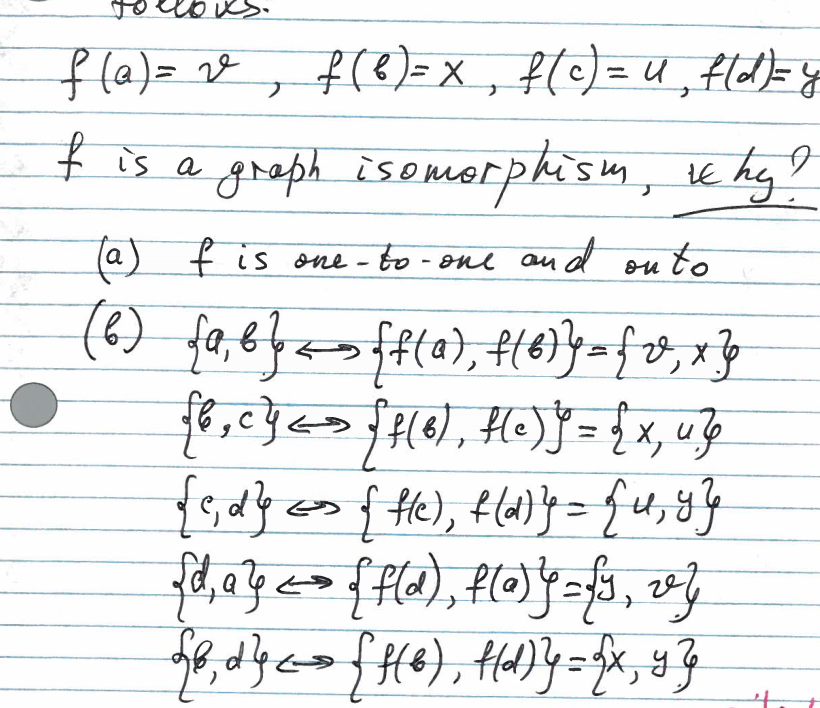 follows.
f(a) = v, f(b) = x, f(c) = u, f(d) = y
f is a graph isomorphism, why?
(a) f is one-to-one and onto
(b) {a, b} ↔ {f(a), f(b)} = {v, x}
{b, c} ↔ {f(b), f(c)} = {x, u}
{c, d} ↔ {f(c), f(d)} = {u, y}
{d, a} ↔ {f(d), f(a)} = {y, v}
{b, d} ↔ {f(b), f(d)} = {x, y}